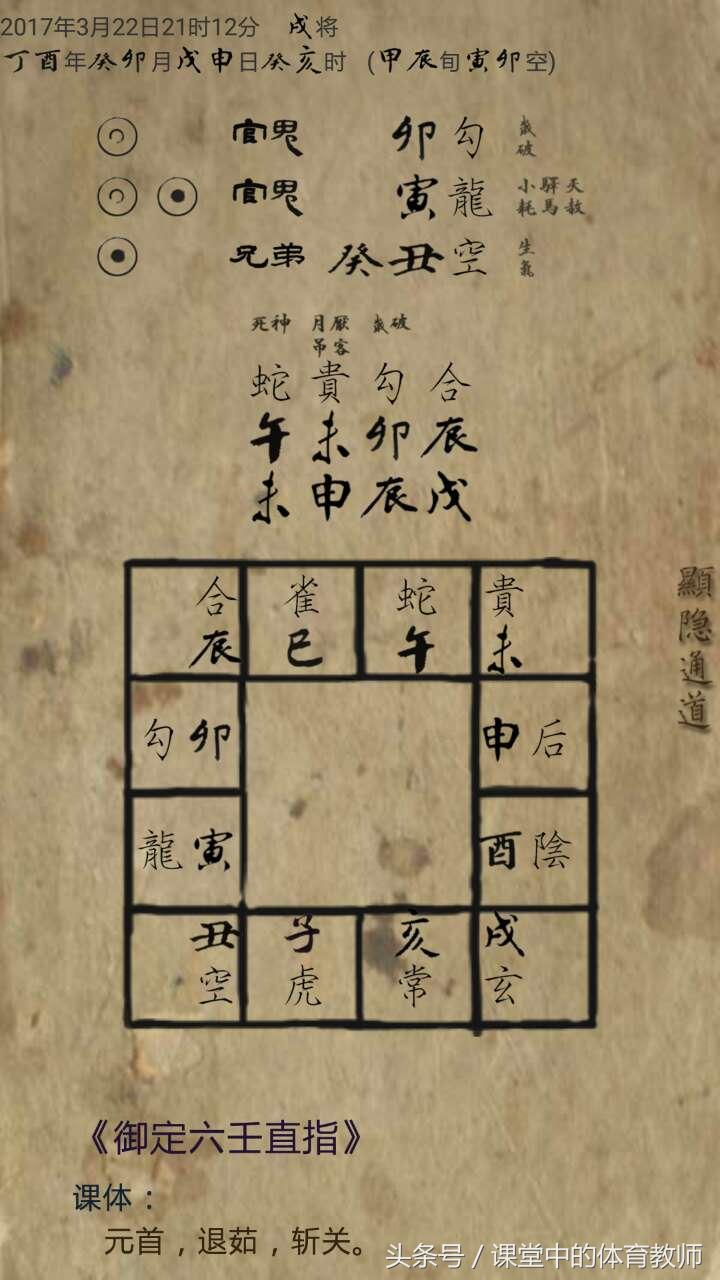 2017年3月22日21时12分 戌将
丁酉年癸卯月戊申日癸亥时 (甲辰旬寅卯空)
官鬼 卯 勾 歲破
官鬼 寅 龍 小耗 驛馬 天赦
兄弟 癸丑 空 生氣
死神 月厭 歲破
吊客
蛇 貴 勾 合
午 未 卯 辰
未 申 辰 戊
合 雀 蛇 貴
辰 巳 午 未
勾 卯 申 后
龍 寅 酉 陰
丑 子 亥 戌
空 虎 常 玄
顯隐通道
《御定六壬直指》
课体：
元首，退茹，斩关。
头条号 / 课堂中的体育教师